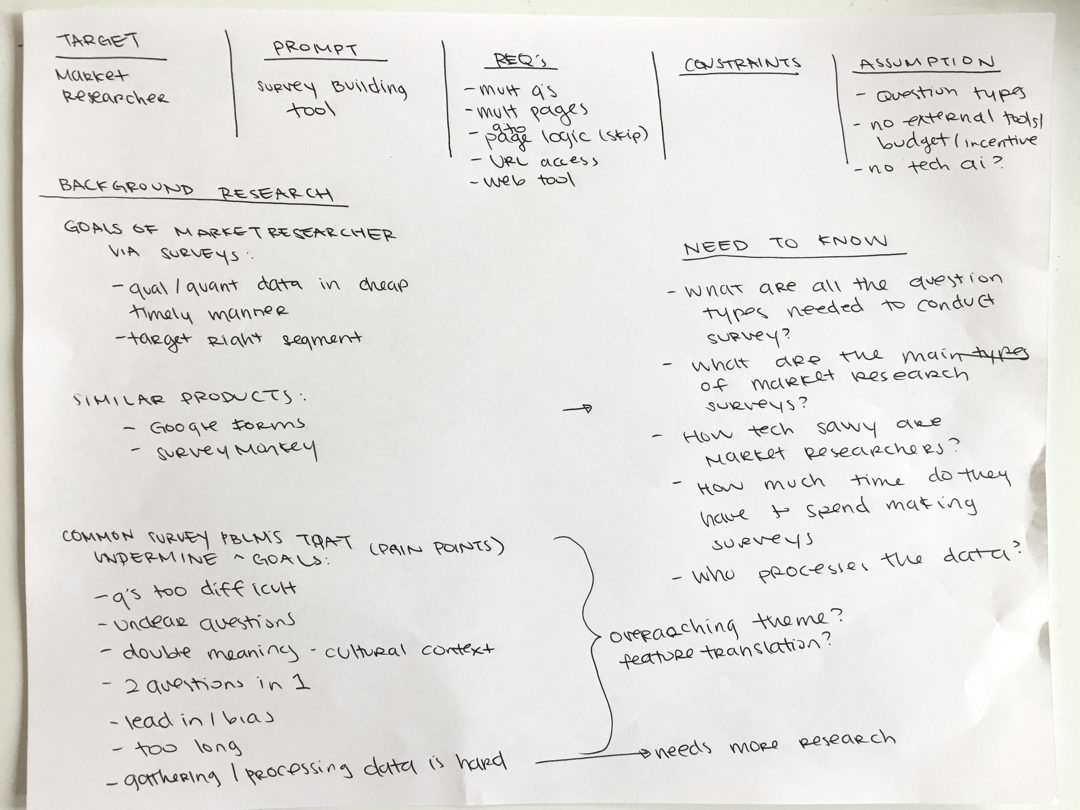 TARGET
Market
Researcher
PROMPT
Survey Building
tool
REQ's
- mult q's
- mult pages
goto
- page logic (skip)
- URL access
- web tool
CONSTRAINTS
ASSUMPTION
- Question types
- no external tools/
budget/incentive
- no tech ai?
BACKGROUND RESEARCH
GOALS OF MARKET RESEARCHER
VIA SURVEYS:
- qual/quant data in cheap
timely manner
- target right segment
SIMILAR PRODUCTS:
- Google Forms
- Survey Monkey
→
COMMON SURVEY PBLMS THAT (PAIN POINTS)
UNDERMINE ^ GOALS:
- q's too difficult
- unclear questions
- double meaning - cultural context
- 2 questions in 1
- lead in/bias
- too long
- gathering/processing data is hard
NEED TO KNOW
- What are all the question
types needed to conduct
survey?
- What are the main types
of market research
surveys?
- How tech savvy are
market researchers?
- How much time do they
have to spend making
surveys
- Who processes the data?
overarching theme?
feature translation?
needs more research